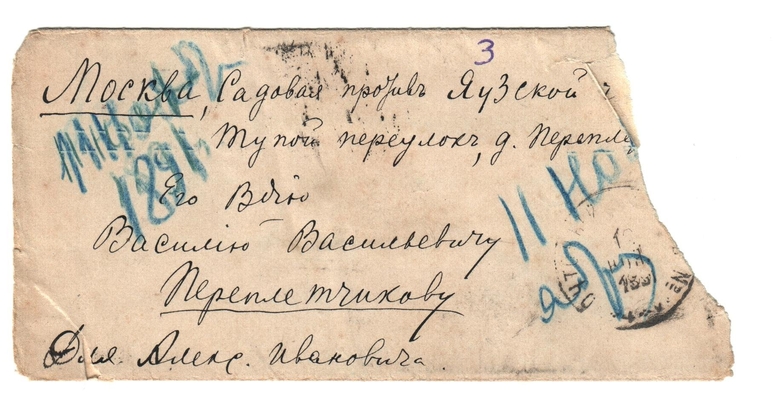 3
Москва, Садовая противъ Яузской ч
Тупой переулокъ, д. Перепле
Его Вбію
Василію Васильевичу
Переплетчикову
Для Алекс. Ивановича.
1891
11 Но